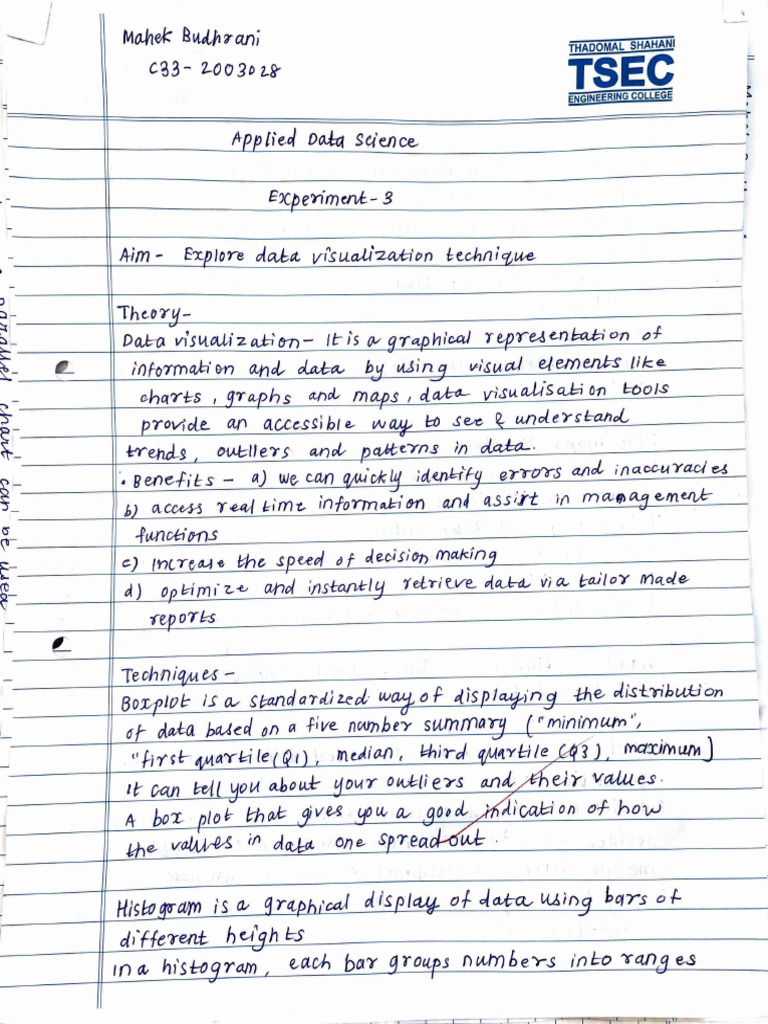 Mahek Budhrani
C33-2003028
THADOMAL SHAHANI
TSEC
ENGINEERING COLLEGE
Applied Data Science
Experiment-3
Aim- Explore data visualization technique
Theory-
Data visualization- It is a graphical representation of
information and data by using visual elements like
charts, graphs and maps, data visualisation tools
provide an accessible way to see & understand
trends, outliers and patterns in data.
• Benefits - a) we can quickly identify errors and inaccuracies
b) access real time information and assist in management
functions
c) Increase the speed of decision making
d) optimize and instantly retrieve data via tailor made
reports
Techniques-
Boxplot is a standardized way of displaying the distribution
of data based on a five number summary ("minimum",
"first quartile(Q1), median, third quartile (Q3), maximum]
It can tell you about your outliers and their values.
A box plot that gives you a good indication of how
the values in data one spread out.
Histogram is a graphical display of data using bars of
different heights
in a histogram, each bar groups numbers into ranges
chart can be used